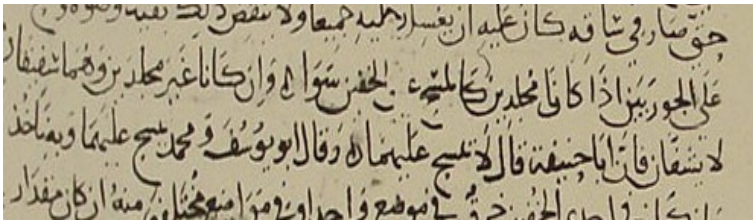 حتى صار في ساقه كان عليه ان يغسل رجليه جميعا ولا ينقض ذلك
على الجوربين اذا كانا مجلدين كالمسح على الخفين سواء وان كانا غير مجلدين وهما صفيقان
لا يشفان فان ابا حنيفة قال لا يمسح عليهما وقال ابو يوسف و محمد يمسح عليهما وبه ناخذ
الخفين خرق في موضع واحد او في مواضع مختلفة منه ان كان مقدار